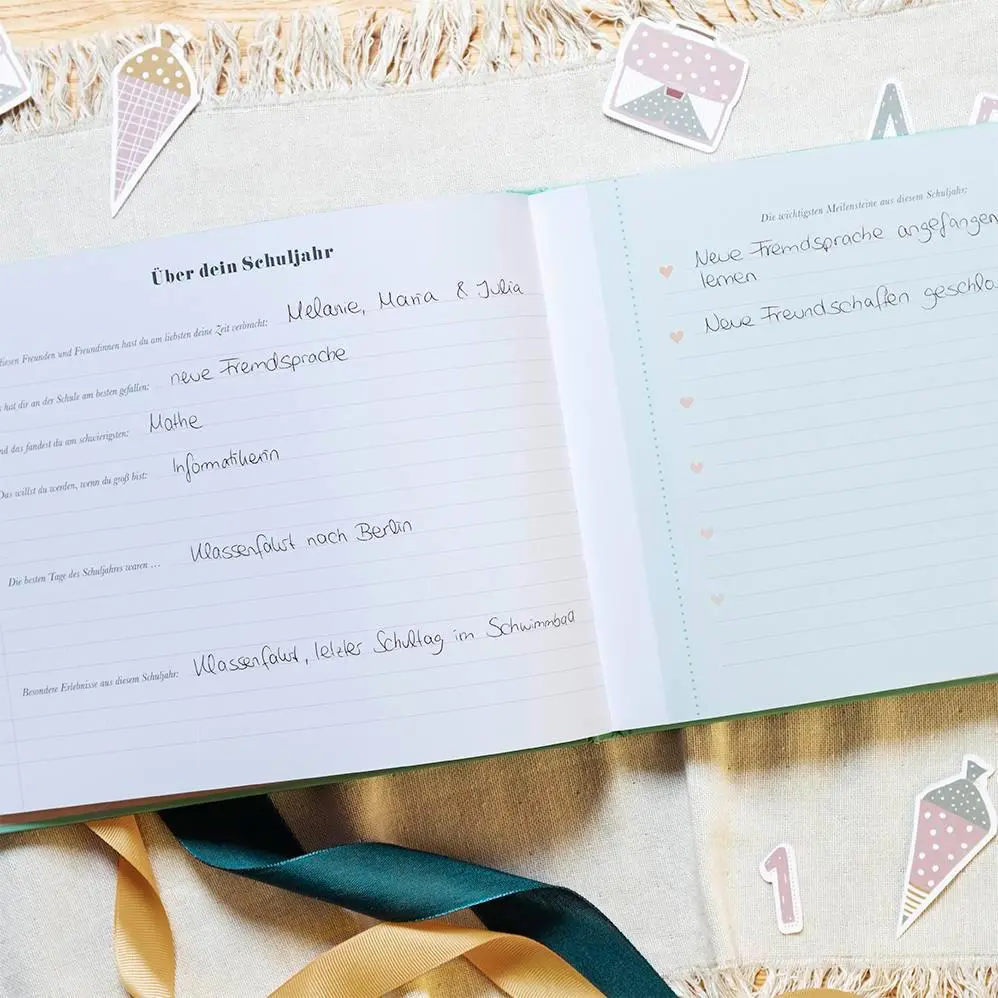 Über dein Schuljahr
diesen Freunden und Freundinnen hast du am liebsten deine Zeit verbracht: Melanie, Maria & Julia
hat dir an der Schule am besten gefallen: neue Fremdsprache
das fandest du am schwierigsten: Mathe
Das willst du werden, wenn du groß bist: Informatikerin
Die besten Tage des Schuljahres waren ... Klassenfahrt nach Berlin
Besondere Erlebnisse aus diesem Schuljahr: Klassenfahrt, letzter Schultag im Schwimmbad
Die wichtigsten Meilensteine aus diesem Schuljahr:
Neue Fremdsprache angefangen
lernen
Neue Freundschaften
A
1